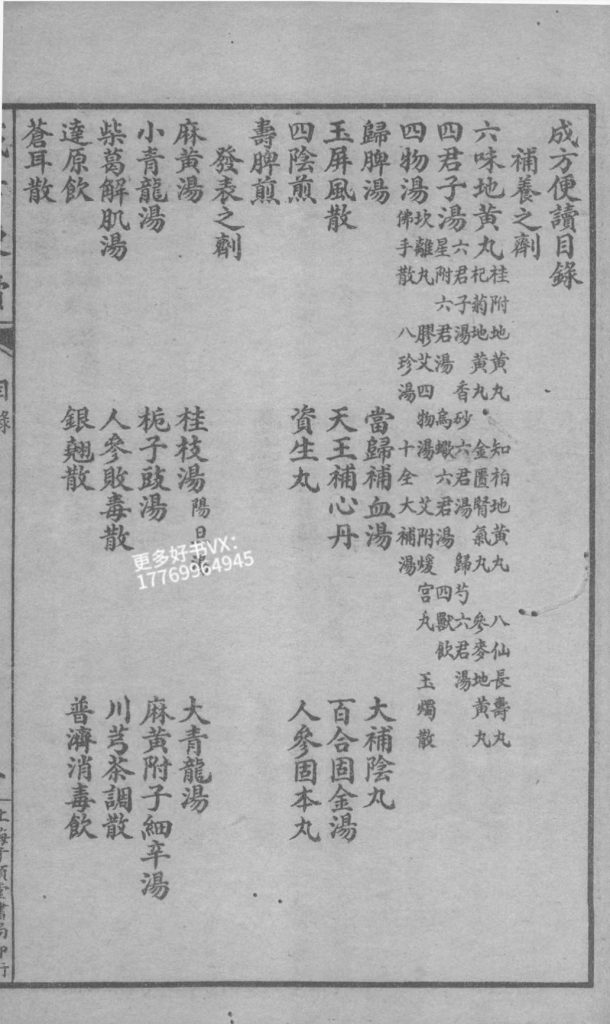 成方便讀目錄
補養之劑
六味地黃丸 桂附地黃丸 知柏地黃丸 八仙長壽丸
杞菊地黃丸 金匱腎氣丸 參麥地黃丸
四君子湯 六君子湯 香砂六君湯 歸芍六君湯
星附六君湯 烏蠍六君湯 四獸飲
四物湯 坎離丸 膠艾四物湯 艾附煖宮丸 玉燭散
佛手散 八珍湯 十全大補湯
歸脾湯 當歸補血湯 大補陰丸
玉屏風散 天王補心丹 百合固金湯
四陰煎 資生丸 人參固本丸
壽脾煎
發表之劑
麻黃湯 桂枝湯 陽旦湯 大青龍湯
小青龍湯 梔子豉湯 麻黃附子細辛湯
柴葛解肌湯 人參敗毒散 川芎茶調散
達原飲 銀翹散 普濟消毒飲
蒼耳散
目錄
上海千頃堂書局印行
更多好书VX:
17769964945